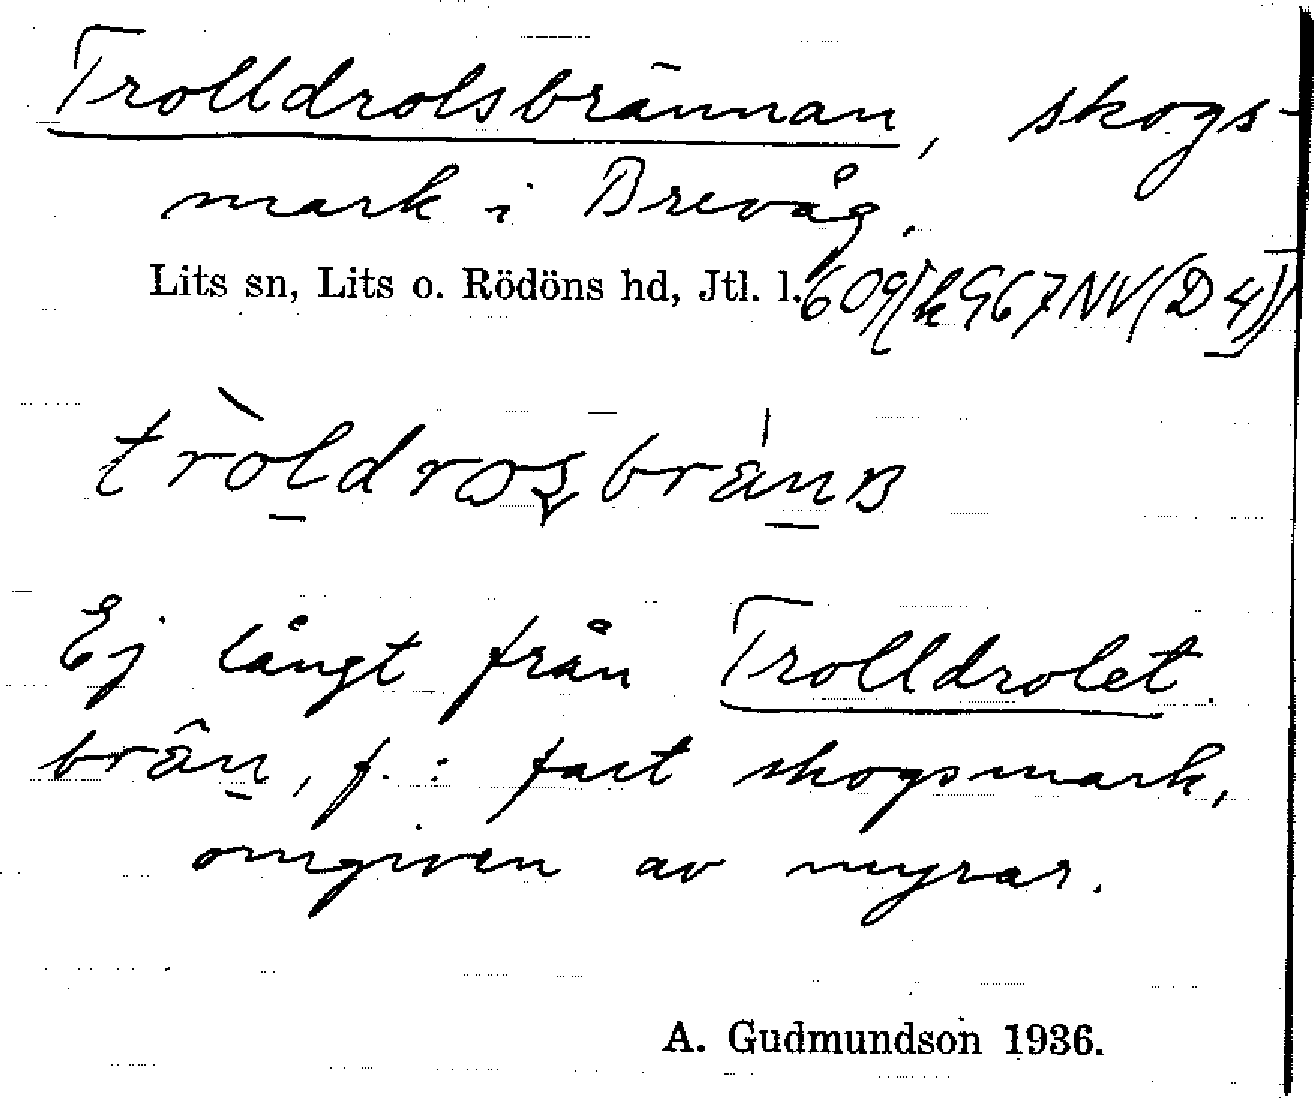 Trolldrolsbrännan, skogs-
mark i Brevåg.
Lits sn, Lits o. Rödöns hd, Jtl. l.
Ej långt från Trolldrolet.
brän, f.: fast skogsmark,
omgiven av myrar.
A. Gudmundson 1936.